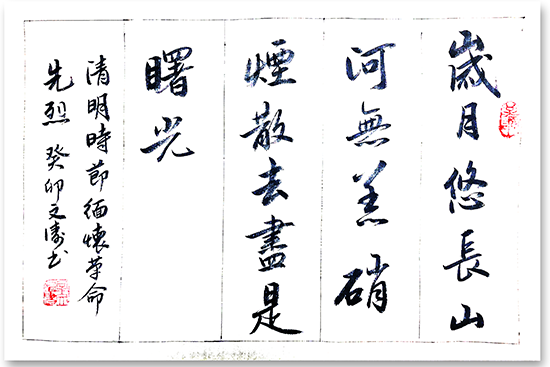 歲月悠長山
河無恙硝
煙散去盡是
曙光
清明時節緬懷革命
先烈 癸卯文濤书